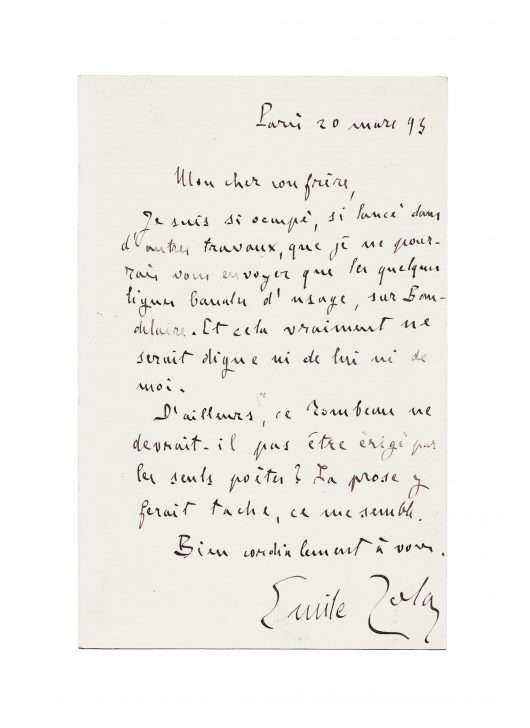 Paris 20 mars 93
Mon cher confrère,
Je suis si occupé, si lancé dans
d'autres travaux, que je ne pour-
rais vous envoyer que les quelques
lignes banales d'usage, sur Bau-
delaire. Et cela vraiment ne
serait digne ni de lui ni de
moi.
D'ailleurs, ce Tombeau ne
devrait-il pas être érigé par
les seuls poètes? La prose y
ferait tache, ce me semble.
Bien cordialement à vous.
Emile Zola